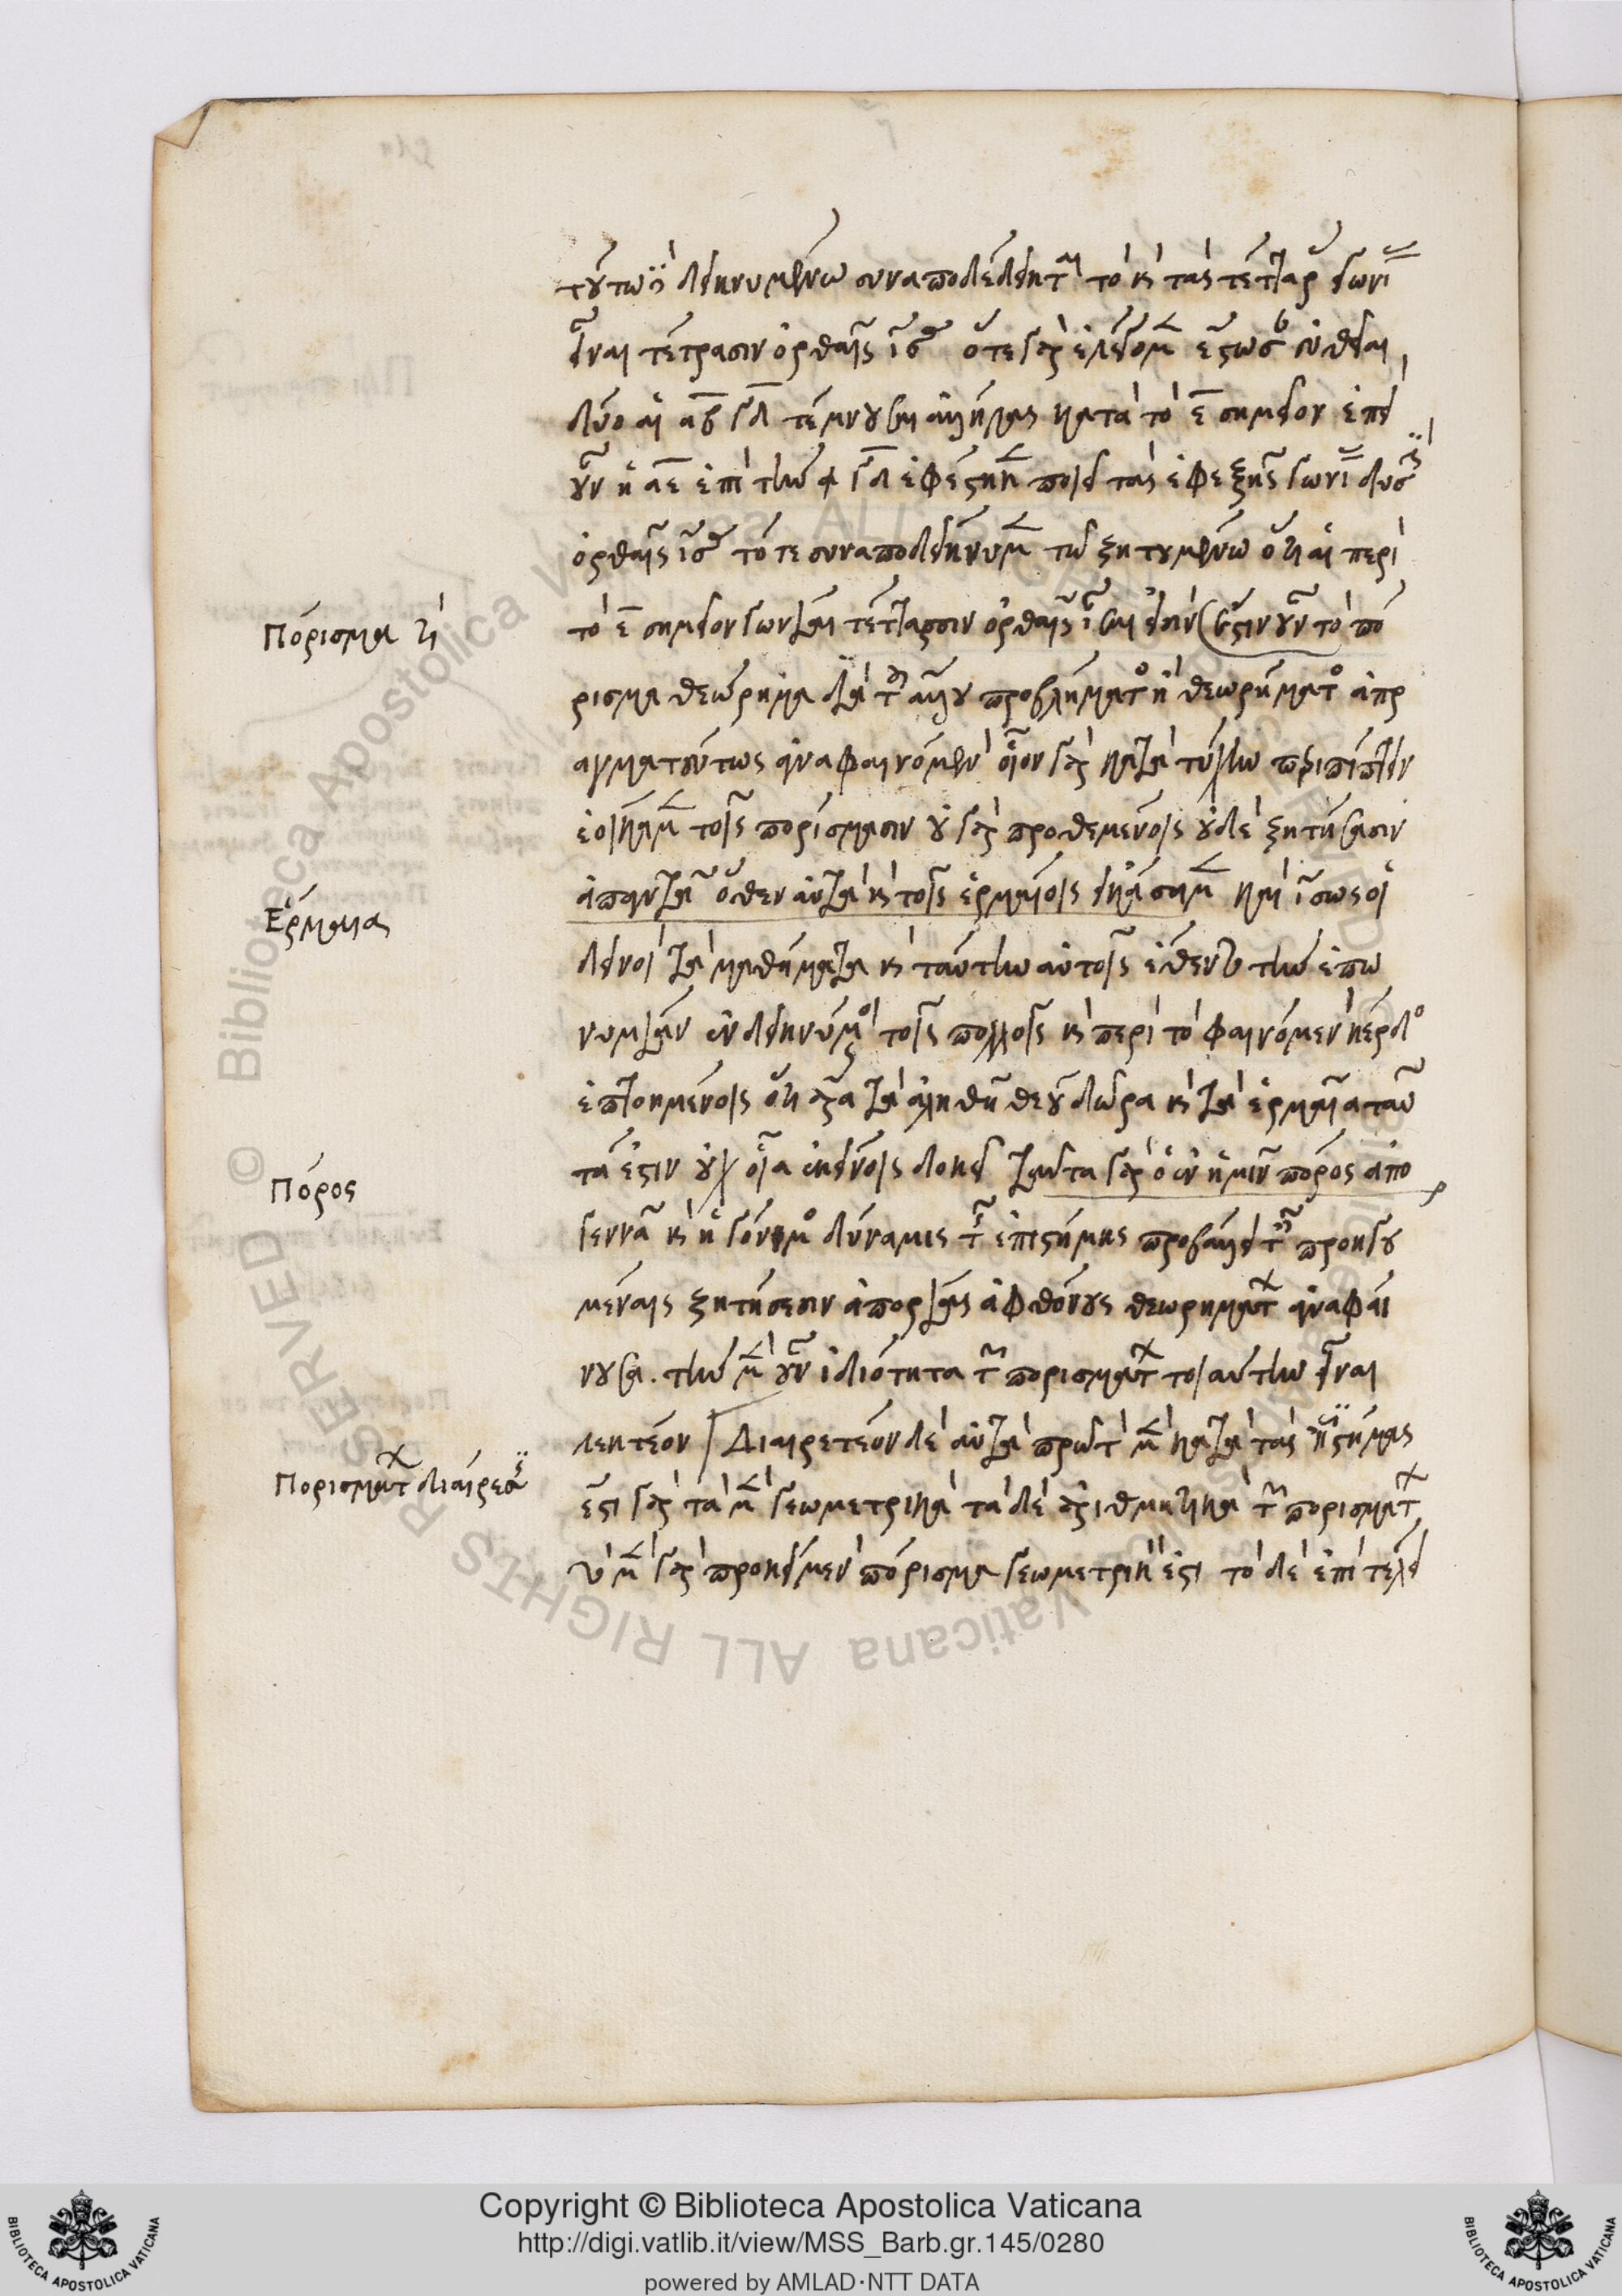 τούτῳ δεικνυμένῳ συναποδέδεικται τὸ καὶ τὰς τέτταρας γωνίας
εἶναι τέτρασιν ὀρθαῖς ἴσας ὅτε γὰρ ἐλέγομεν ἔστωσαν εὐθεῖαι
δύο αἱ αβ γδ τέμνουσαι ἀλλήλας κατὰ τὸ ε σημεῖον ἐπεὶ
οὖν ἡ αε ἐπὶ τὴν γδ ἐφέστηκεν ποιεῖ τὰς ἐφεξῆς γωνίας δυσὶν
ὀρθαῖς ἴσας τότε συναποδείκνυμεν τῷ ζητουμένῳ ὅτι αἱ περὶ
Πόρισμα τί
τὸ ε σημεῖον γωνίαι τέτταρσιν ὀρθαῖς ἴσαι εἰσίν ἔστιν οὖν τὸ πό
ρισμα θεώρημα διὰ τῆς ἄλλου προβλήματος ἢ θεωρήματος ἀπρ
αγματεύτως ἀναφαινόμενον οἷον γὰρ κατὰ τύχην περιπίπτειν
ἐοίκαμεν τοῖς πορίσμασιν οὐ γὰρ προθεμένοις οὐδὲ ζητήσασιν
ἀπαντᾷ ὅθεν αὐτὰ καὶ τοῖς ἑρμαίοις εἰκάσαμεν καὶ ἴσως οἱ
Ἑρμαια
δεινοὶ τὰ μαθήματα καὶ ταύτην αὐτοῖς ἔθεντο τὴν ἐπω
νυμίαν ἐνδεικνύμενοι τοῖς πολλοῖς καὶ περὶ τὸ φαινόμενον κέρδος
ἐπτοημένοις ὅτι ἄρα τὰ ἀληθῆ θεοῦ δῶρα καὶ τὰ ἕρμαια ταῦ
τά ἐστιν οὐχ οἷα ἐκείνοις δοκεῖ ταῦτα γὰρ ὁ ἐν ἡμῖν πόρος ἀπο
Πόρος
γεννᾷ καὶ ἡ γόνιμος δύναμις τῆς ἐπιστήμης προβάλλει ταῖς προηγου
μέναις ζητήσεσιν ἀπορίας ἀφθόνους θεωρημάτων ἀναφαί
νουσα. τὴν μὲν οὖν ἰδιότητα τῶν πορισμάτων τοιαύτην εἶναι
λεκτέον Διαιρετέον δὲ αὐτὰ πρῶτον μὲν κατὰ τὰς ἐπιστήμας
Πορισμάτων διαίρεσις
ἔστι γὰρ τὰ μὲν γεωμετρικὰ τὰ δὲ ἀριθμητικὰ τῶν πορισμάτων
τὸ μὲν γὰρ προκείμενον πόρισμα γεωμετρικόν ἐστι τὸ δὲ ἐπὶ τέλει
Copyright © Biblioteca Apostolica Vaticana
http://digi.vatlib.it/view/MSS_Barb.gr.145/0280
powered by AMLAD·NTT DATA